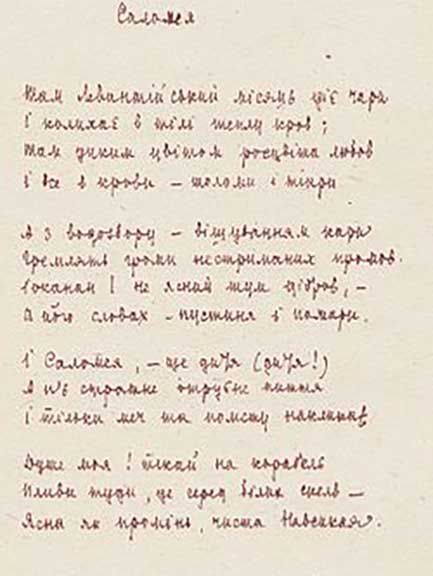 Саломея
Там Левантійський місяць діє чари
І колихає в тілі теплу кров;
Там диким цвітом росцвіта любов
І все в крови – шоломи і тіари
А з водозбору – віщуванням кари
Гремлять громи нестриманих промов.
Іоканан! Не ясний шум дібров, –
В його словах – пустиня і пожари.
І Саломея, – ще дитя (дитя!)
А п'є страшне отрутне пиття
І тільки меч та помсту накликає
Душе моя! Тікай на корабель
Пливи туди, де серед білих скель –
Ясна як промінь, чиста Навсикая.